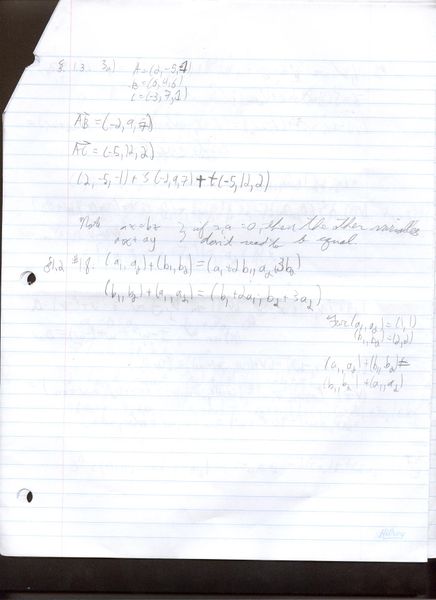 § 1.3 3a) A=(2,-5,-1)
B=(0,4,6)
C=(-3,7,1)
AB=(-2,9,7)
AC=(-5,12,2)
(2,-5,-1)+s(-2,9,7)+t(-5,12,2)
Note ax=bx } if x,a =0, then the other variables
ax=ay } don't need to be equal
§1.2 #18. (a₁,a₂)+(b₁,b₂)=(a₁+2b₁,a₂+3b₂)
(b₁,b₂)+(a₁,a₂)=(b₁+2a₁,b₂+3a₂)
For (a₁,a₂)=(1,1)
(b₁,b₂)=(2,2)
(a₁,a₂)+(b₁,b₂)≠
(b₁,b₂)+(a₁,a₂)
Hilroy